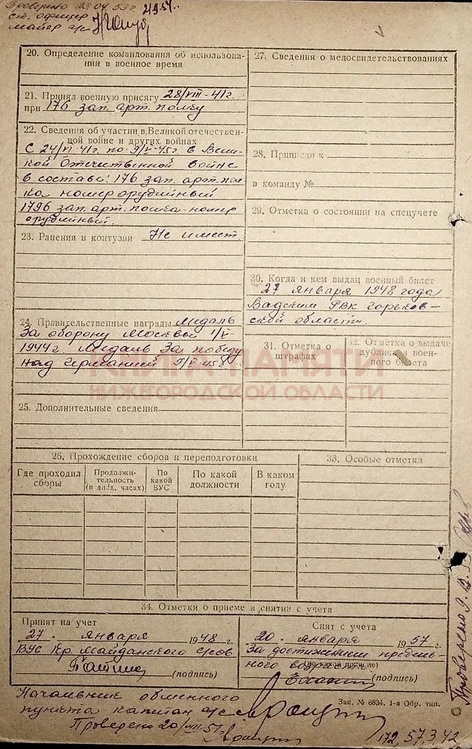 Проверено 23/04 53 г.
ст. офицер
майор а/с
20. Определение командования об использова-
нии в военное время
21. Принял военную присягу 28/VIII-41г.
при 176 зап. арт. полку
22. Сведения об участии в Великой отечествен-
ной войне и других войнах
в Вели-
кой Отечественной войне
в составе: 176 зап. арт. пол-
ка номер орудийный
1796 зап. арт. полка номер
орудийный.
23. Ранения и контузии Не имеет
24. Правительственные награды Медаль
За оборону Москвы
1944г Медаль За победу
над Германией
25. Дополнительные сведения
27. Сведения о медосвидетельствованиях
28. Приписан к
в команду №
29. Отметка о состоянии на спецучете
30. Когда и кем выдан военный билет
27 января 1948 года,
Вадским РВК Горьков-
ской области
31. Отметка о
штрафах
32. Отметка о выдаче
дубликата воен-
ного билета
КНИГА ПАМЯТИ
НИЖЕГОРОДСКОЙ ОБЛАСТИ
26. Прохождение сборов и переподготовки
Где проходил
сборы
Продолжи-
тельность
(в днях, часах)
По
какой
ВУС
По какой
должности
В каком
году
33. Особые отметки
34. Отметки о приеме и снятии с учета
Принят на учет
27. января 1948 г.
ВУС Кр. Майданского с/сов
(подпись)
Снят с учета
20. января 1957 г.
За достижением предель-
ного возраста
(подпись)
Начальник обменного
пункта капитан а/с
Проверено 20/VIII-51г.
Зак. № 6834. 1-я Обр. тип.